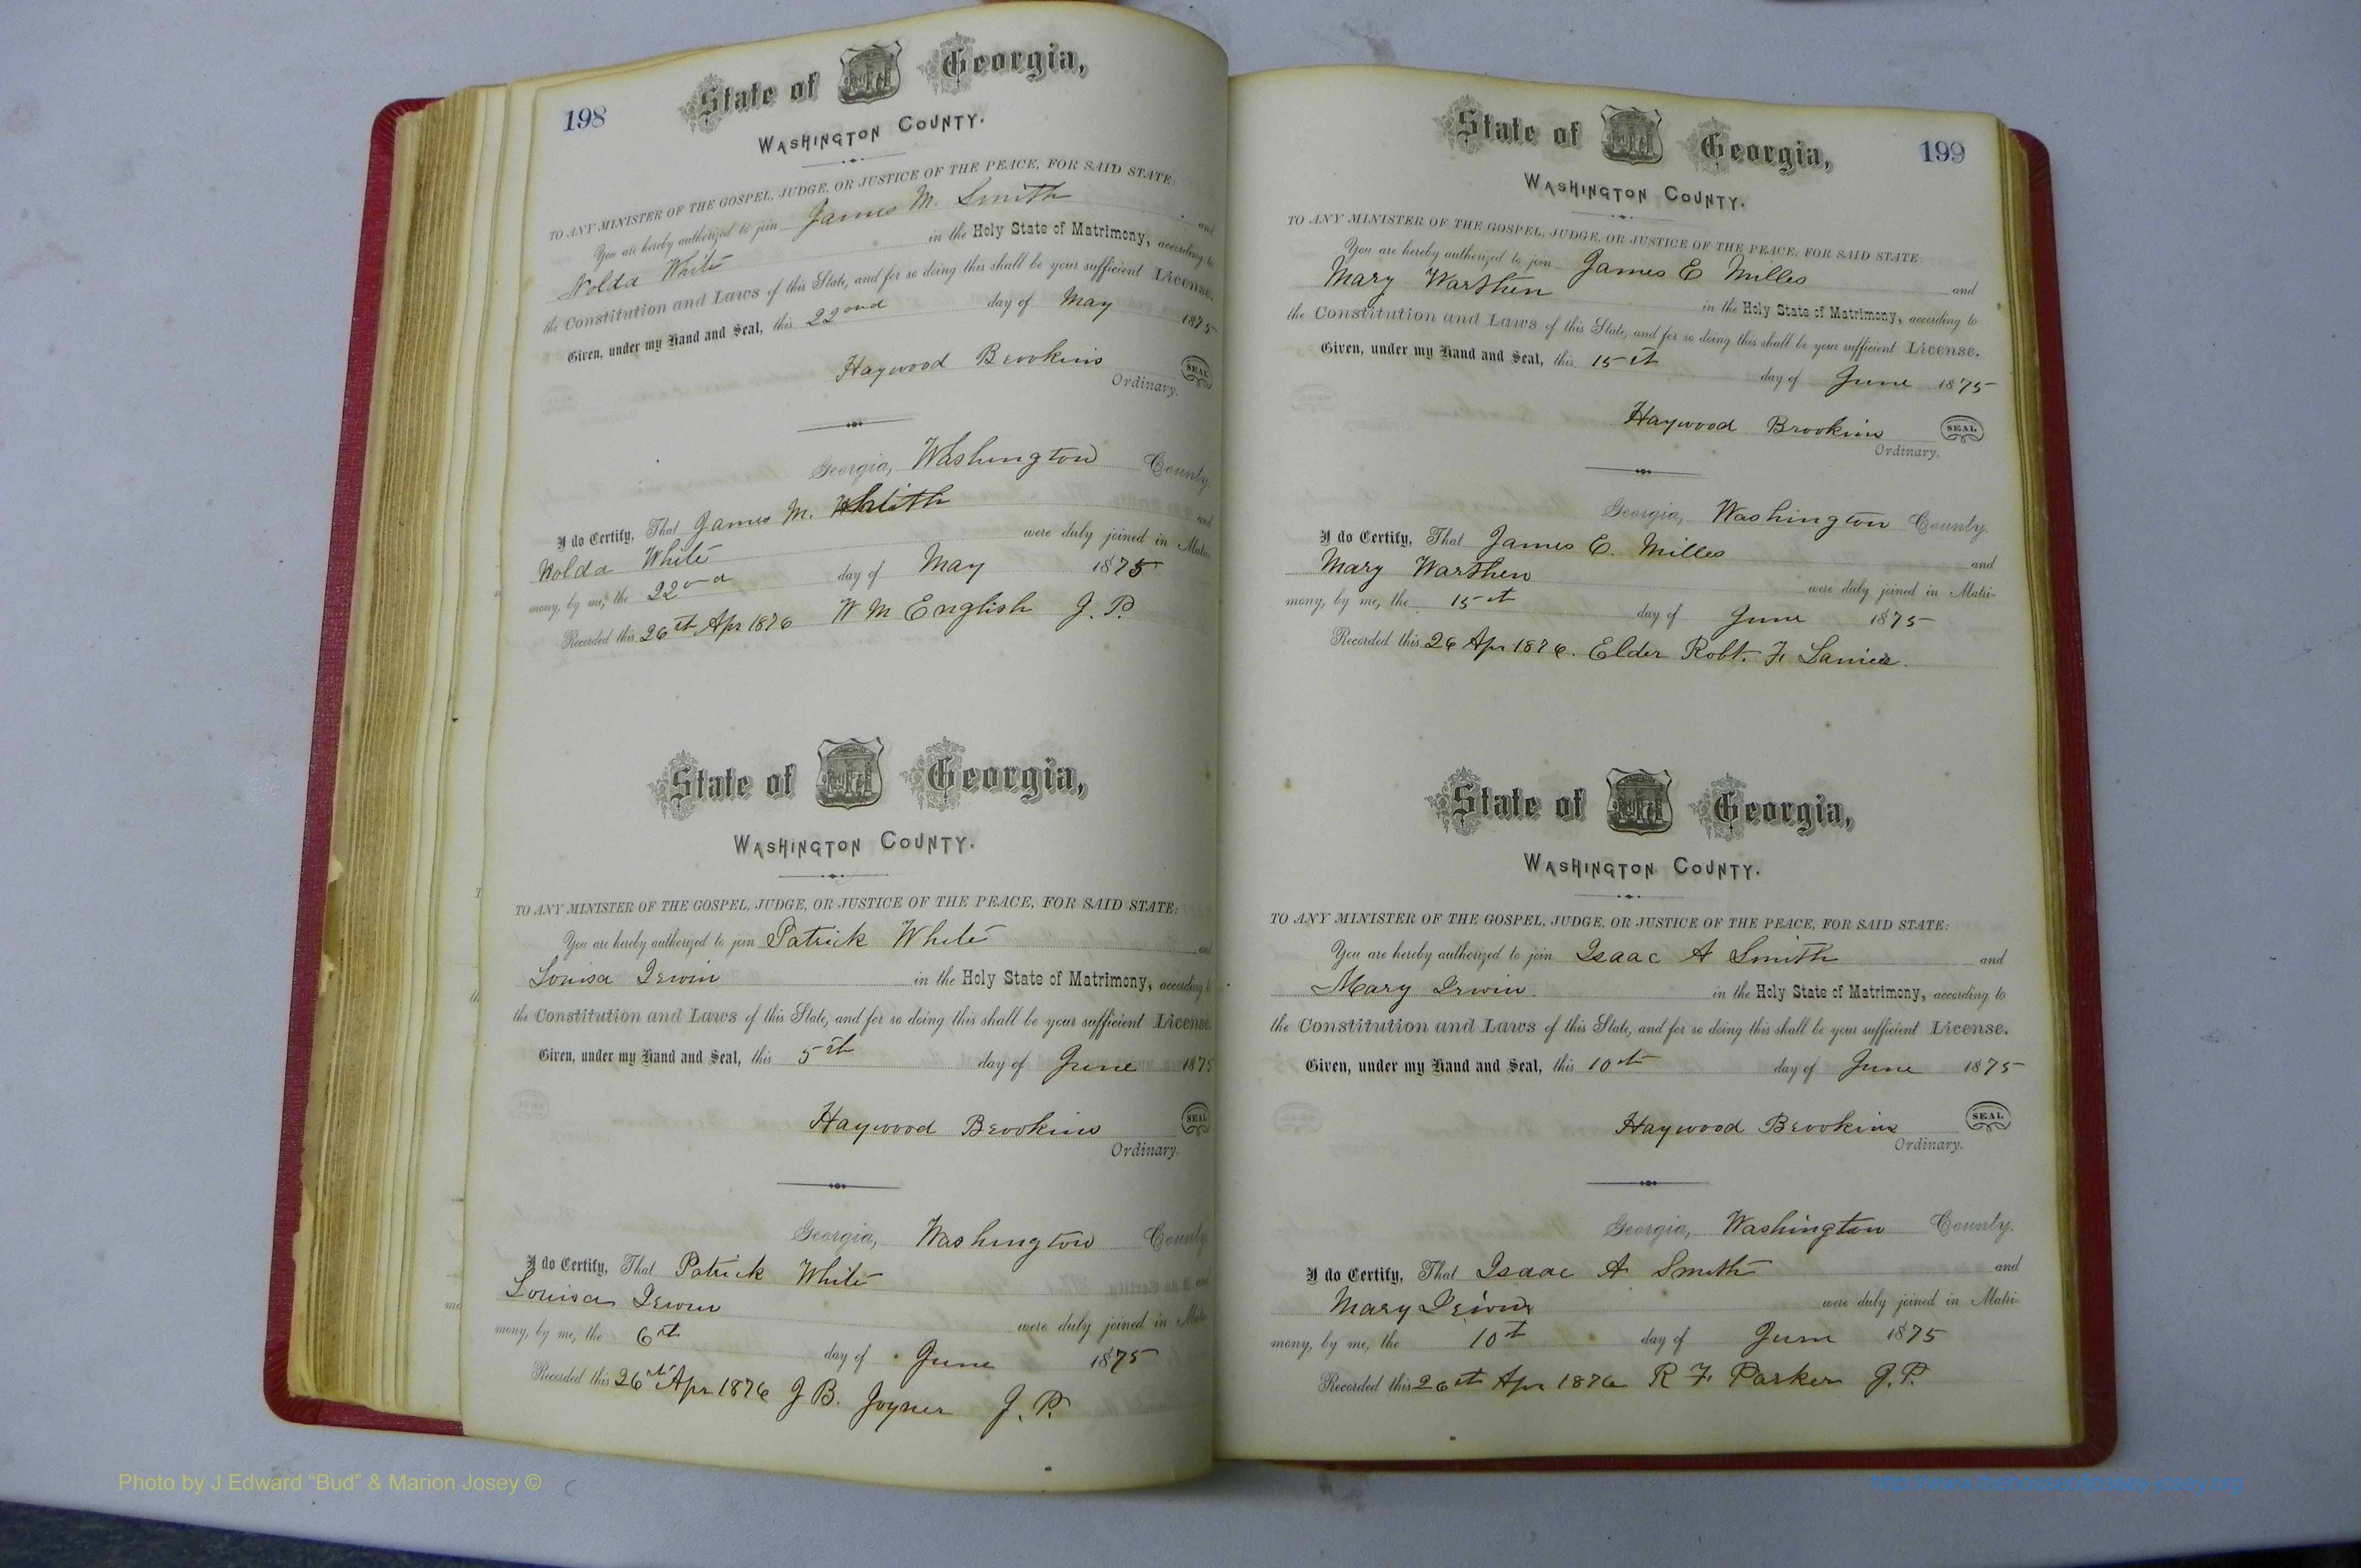 198
State of Georgia,
WASHINGTON COUNTY.
TO ANY MINISTER OF THE GOSPEL, JUDGE, OR JUSTICE OF THE PEACE, FOR SAID STATE:
You are hereby authorized to join James M. Smith and
Nolda White in the Holy State of Matrimony, according to
the Constitution and Laws of this State, and for so doing this shall be your sufficient License.
Given, under my Hand and Seal, this 22ond day of May 1875
Haywood Brookins SEAL
Ordinary.
Georgia, Washington County.
I do Certify, That James M. and
Nolda White were duly joined in Matri-
mony, by me, the 22nd day of May 1875
Recorded this 26th Apr 1876 W M English J. P.
State of Georgia,
WASHINGTON COUNTY.
TO ANY MINISTER OF THE GOSPEL, JUDGE, OR JUSTICE OF THE PEACE, FOR SAID STATE:
You are hereby authorized to join Patrick White and
Louisa Irwin in the Holy State of Matrimony, according to
the Constitution and Laws of this State, and for so doing this shall be your sufficient License.
Given, under my Hand and Seal, this 5th day of June 1875
Haywood Brookins SEAL
Ordinary.
Georgia, Washington County
I do Certify, That Patrick White and
Louisa Irwin were duly joined in Matri-
mony, by me, the 6th day of June 1875
Recorded this 26th Apr 1876 J B. Joyner J. P.
199
State of Georgia,
WASHINGTON COUNTY.
TO ANY MINISTER OF THE GOSPEL, JUDGE, OR JUSTICE OF THE PEACE, FOR SAID STATE:
You are hereby authorized to join James E Milles and
Mary Warthen in the Holy State of Matrimony, according to
the Constitution and Laws of this State, and for so doing this shall be your sufficient License.
Given, under my Hand and Seal, this 15th day of June 1875
Haywood Brookins SEAL
Ordinary.
Georgia, Washington County.
I do Certify, That James E. Milles and
Mary Warthen were duly joined in Matri-
mony, by me, the 15th day of June 1875
Recorded this 26 Apr 1876. Elder Robt. F. Lanier.
State of Georgia,
WASHINGTON COUNTY.
TO ANY MINISTER OF THE GOSPEL, JUDGE, OR JUSTICE OF THE PEACE, FOR SAID STATE:
You are hereby authorized to join Isaac A Smith and
Mary Irwin in the Holy State of Matrimony, according to
the Constitution and Laws of this State, and for so doing this shall be your sufficient License.
Given, under my Hand and Seal, this 10th day of June 1875
Haywood Brookins SEAL
Ordinary.
Georgia, Washington County.
I do Certify, That Isaac A Smith and
Mary Irwin were duly joined in Matri-
mony, by me, the 10th day of June 1875
Recorded this 26th Apr 1876 R F. Parker J. P.
Photo by J Edward “Bud” & Marion Josey ©